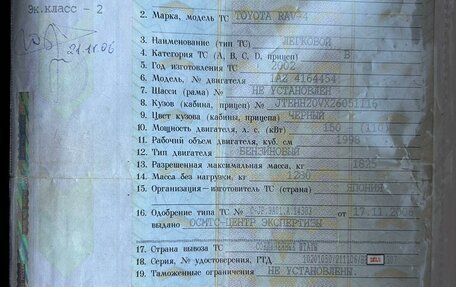 Эк.класс - 2
21.11.06
2. Марка, модель ТС TOYOTA RAV-4
3. Наименование (тип ТС) ЛЕГКОВОЙ
4. Категория ТС (А, В, С, D, прицеп) В
5. Год изготовления ТС 2002
6. Модель, № двигателя 1AZ 4164454
7. Шасси (рама) № НЕ УСТАНОВЛЕН
8. Кузов (кабина, прицеп) № JTEHH20VX26051116
9. Цвет кузова (кабины, прицепа) ЧЕРНЫЙ
10. Мощность двигателя, л. с. (кВт) 150 (110)
11. Рабочий объем двигателя, куб. см 1998
12. Тип двигателя БЕНЗИНОВЫЙ
13. Разрешенная максимальная масса, кг
14. Масса без нагрузки, кг 1230
15. Организация—изготовитель ТС (страна) ЯПОНИЯ
16. Одобрение типа ТС № от 17.11.2006
выдано ОСМТС-ЦЕНТР ЭКСПЕРТИЗЫ
17. Страна вывоза ТС
18. Серия, № удостоверения, ГТД
19. Таможенные ограничения НЕ УСТАНОВЛЕНЫ.